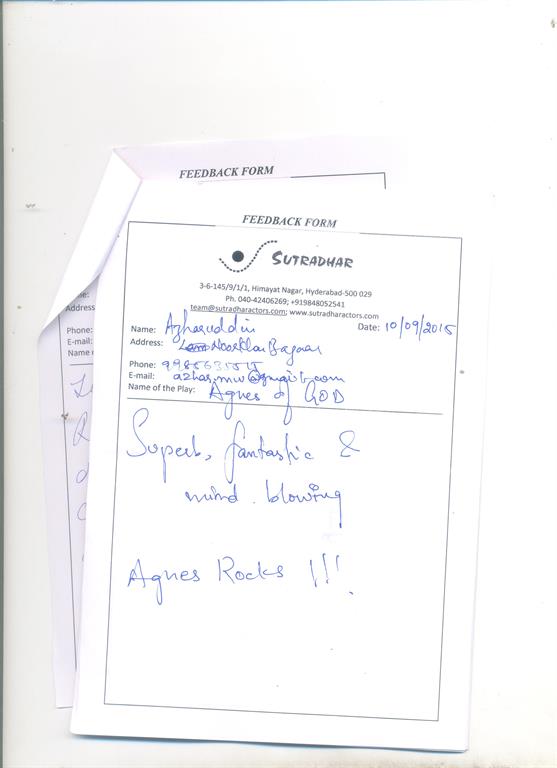 FEEDBACK FORM
FEEDBACK FORM
SUTRADHAR
3-6-145/9/1/1, Himayat Nagar, Hyderabad-500 029
Ph. 040-42406269; +919848052541
team@sutradharactors.com; www.sutradharactors.com
Name: Azharuddin Date: 10/09/2015
Address: Bazaar
Phone:
E-mail:
Name of the Play: Agnes of GOD
Superb, fantastic &
mind. blowing
Agnes Rocks !!!
Address
Phone:
E-mail:
Name